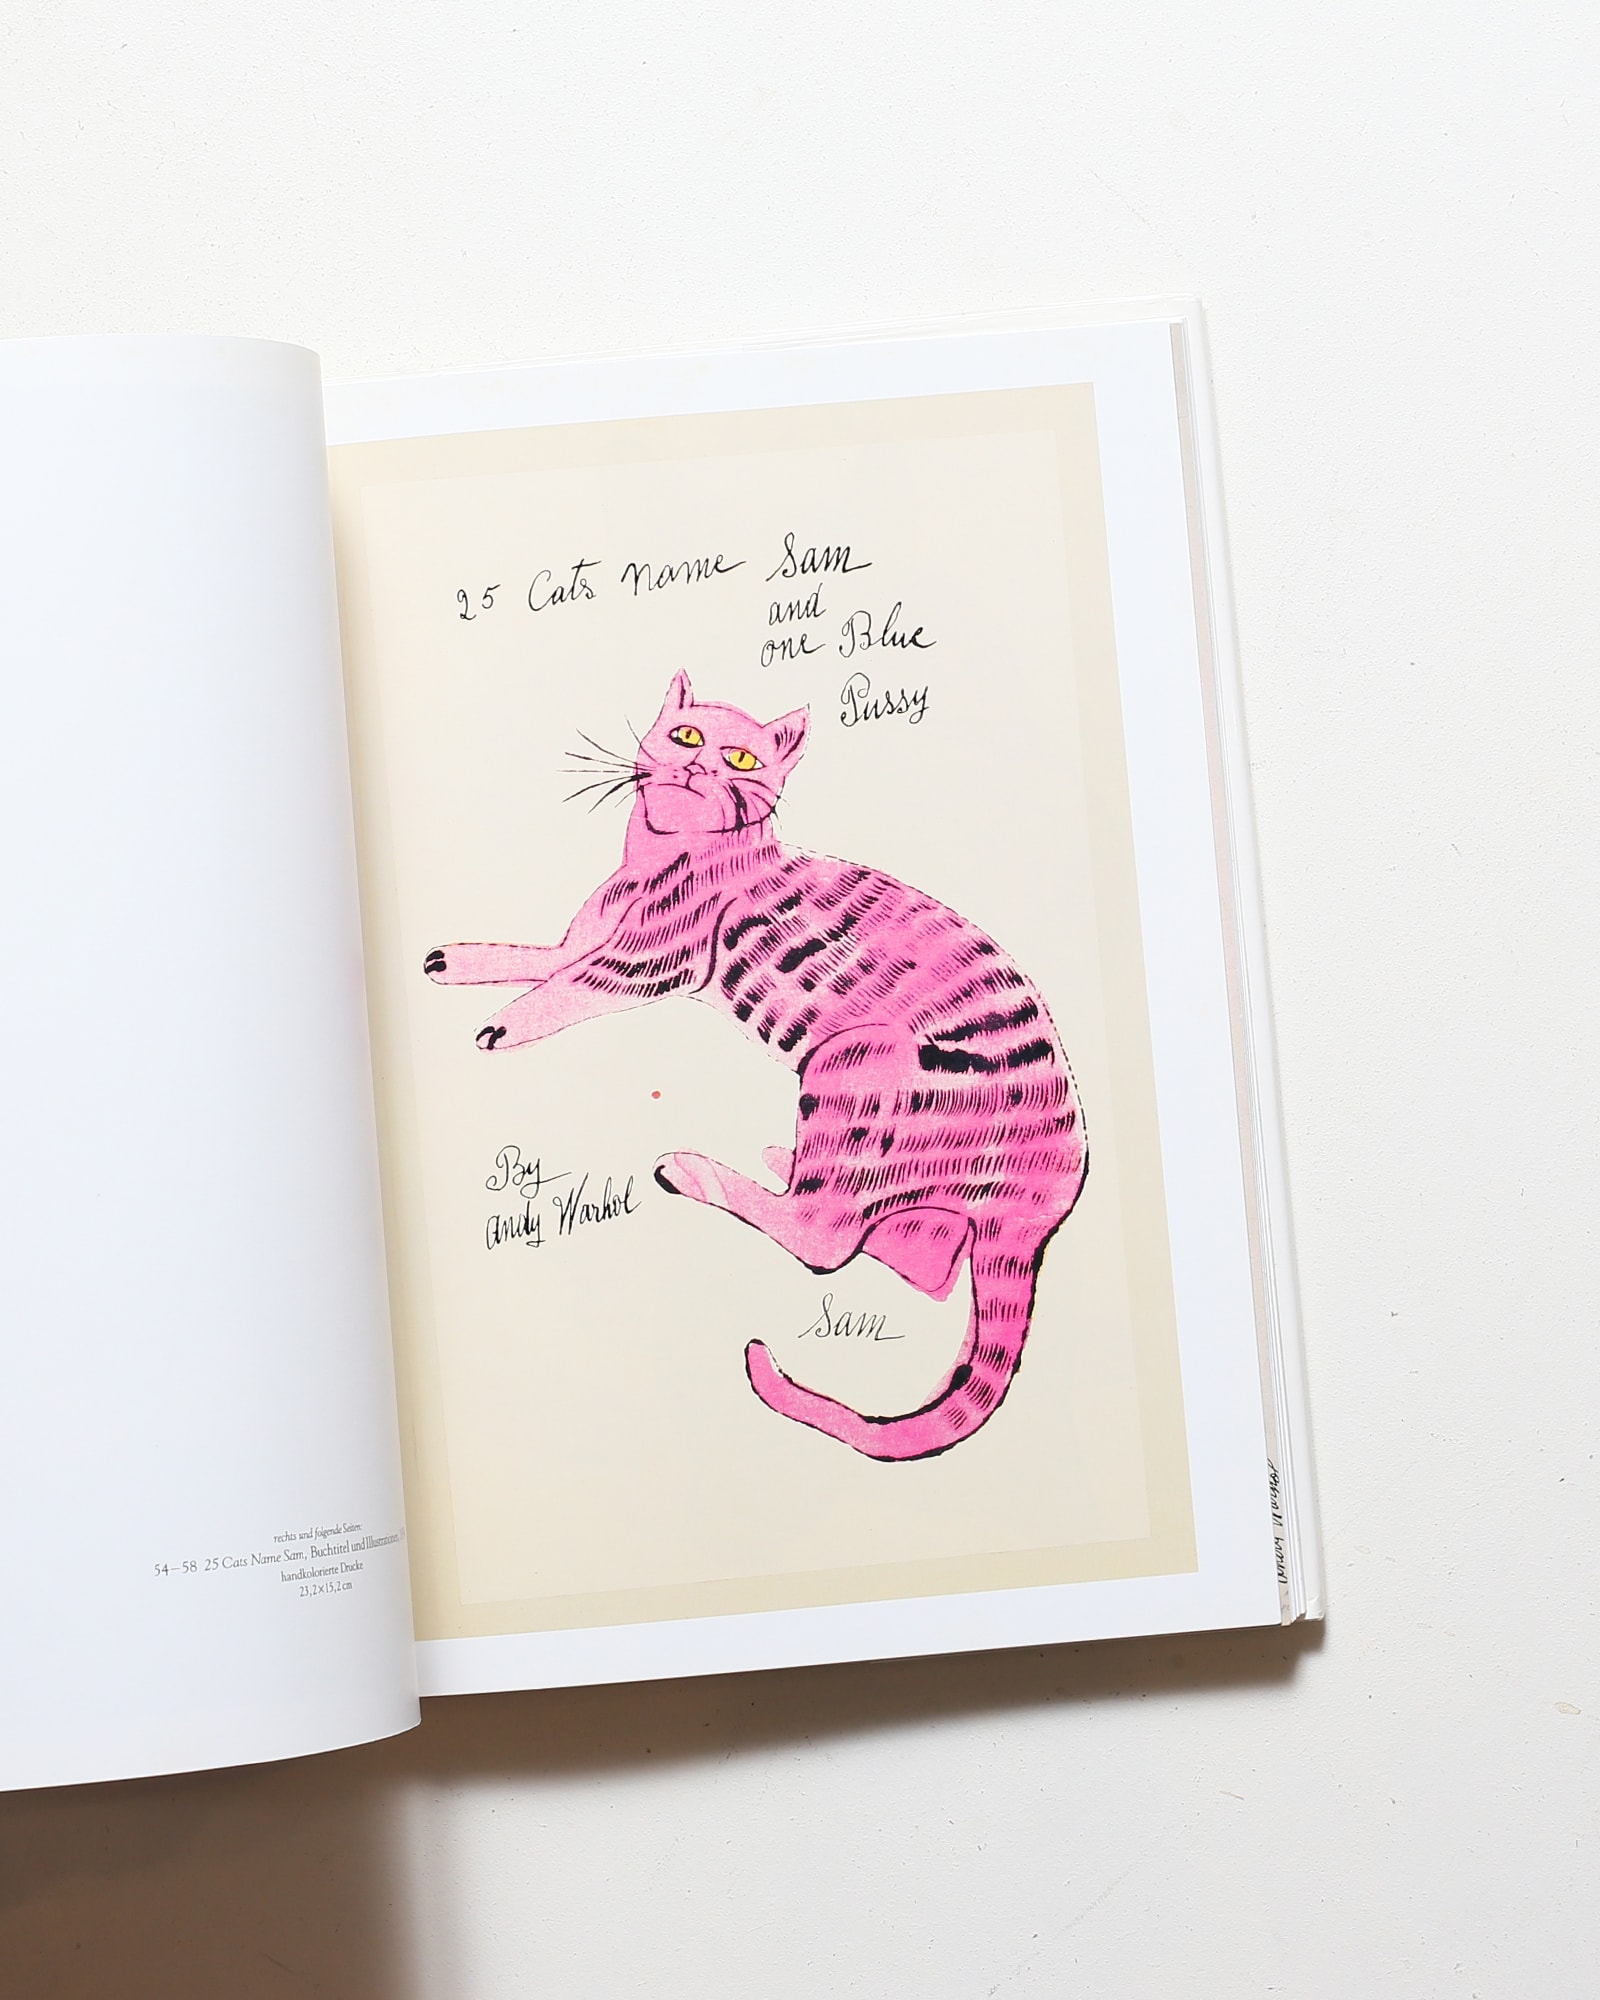 rechts und folgende Seiten:
54–58 25 Cats Name Sam, Buchtitel und Illustrationen,
handkolorierte Drucke
23,2×15,2 cm
25 Cats name Sam
and
one Blue
Pussy
By
Andy Warhol
Sam
Andy Warhol